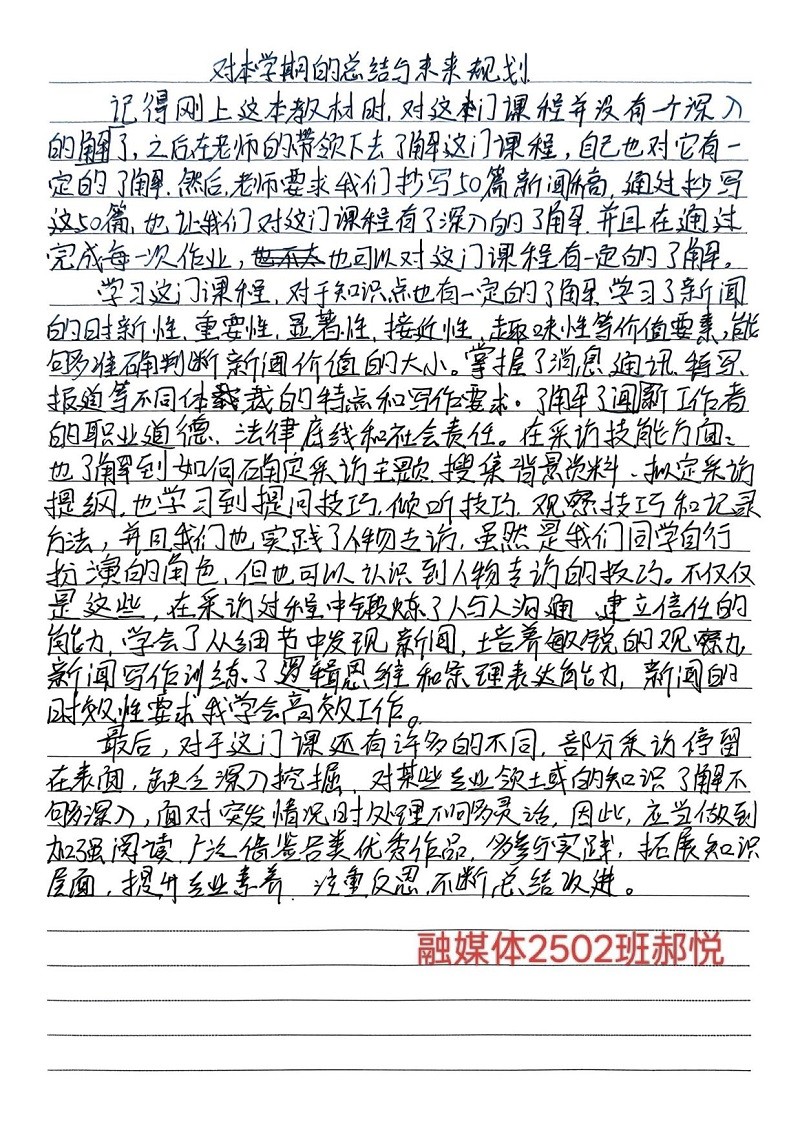 对本学期的总结与未来规划
记得刚上这本教材时,对这本门课程并没有一个深入
的了解了,之后在老师的带领下去了解这门课程,自己也对它有一
定的了解.然后,老师要求我们抄写50篇新闻稿,通过抄写
这50篇,也让我们对这门课程有了深入的了解.并且在通过
完成每一次作业,也可以对这门课程有一定的了解。
学习这门课程,对于知识点也有一定的了解.学习了新闻
的时新性、重要性、显著性、接近性、趣味性等价值要素,能
够准确判断新闻价值的大小。掌握了消息、通讯、特写、
报道等不同体裁的特点和写作要求.了解了闻新工作者
的职业道德、法律底线和社会责任。在采访技能方面:
也了解到如何确定采访主题、搜集背景资料、拟定采访
提纲,也学习到提问技巧,倾听技巧、观察技巧和记录
方法,并且我们也实践了人物专访,虽然是我们同学自行
扮演的角色,但也可以认识到人物专访的技巧。不仅仅
是这些,在采访过程中锻炼了人与人沟通、建立信任的
能力,学会了从细节中发现新闻,培养敏锐的观察力,
新闻写作训练了逻辑思维和条理表达能力,新闻的
时效性要求我学会高效工作。
最后,对于这门课还有许多的不同,部分采访停留
在表面,缺乏深入挖掘、对某些专业领土或的知识了解不
够深入,面对突发情况时处理不问够灵活,因此,应当做到
加强阅读、广泛借鉴各类优秀作品,多参与实践,拓展知识
层面,提升专业素养、注重反思,不断总结改进。
融媒体2502班郝悦